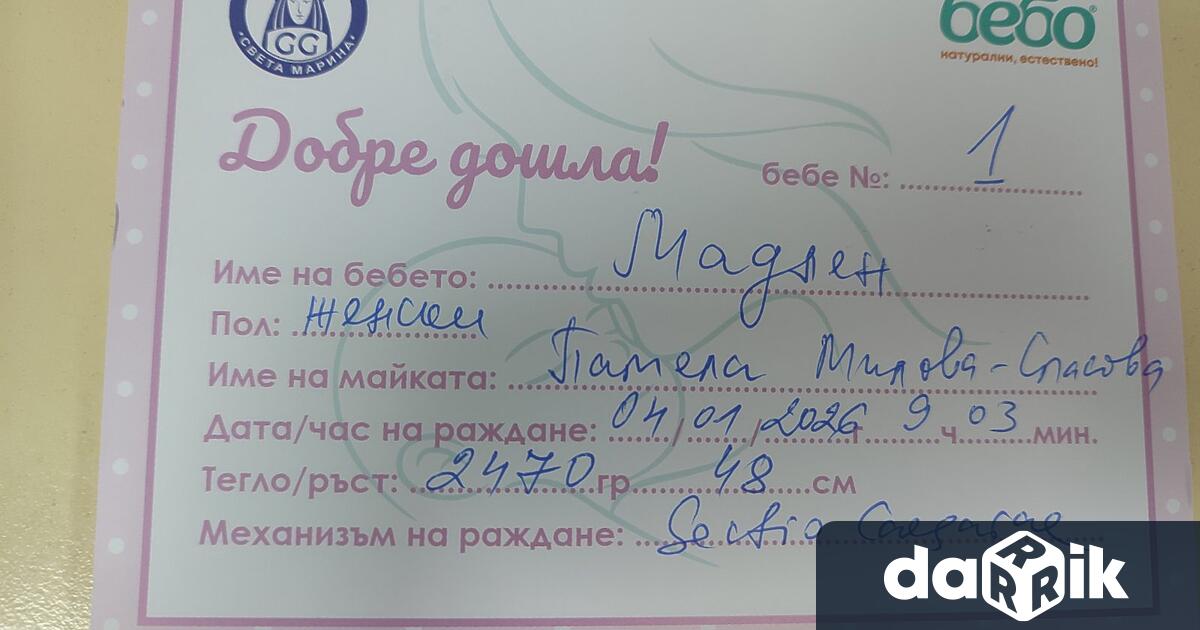 GG
СВЕТА МАРИНА
бебо
натурални, естествено!
Добре дошла!
бебе №: 1
Име на бебето: Мадлен
Пол: женски
Име на майката: Памела Милова-Спасова
Дата/час на раждане: 04/01/2026 9 ч 03 мин.
Тегло/ръст: 2470 гр 48 см
Механизъм на раждане: Sectio
darik